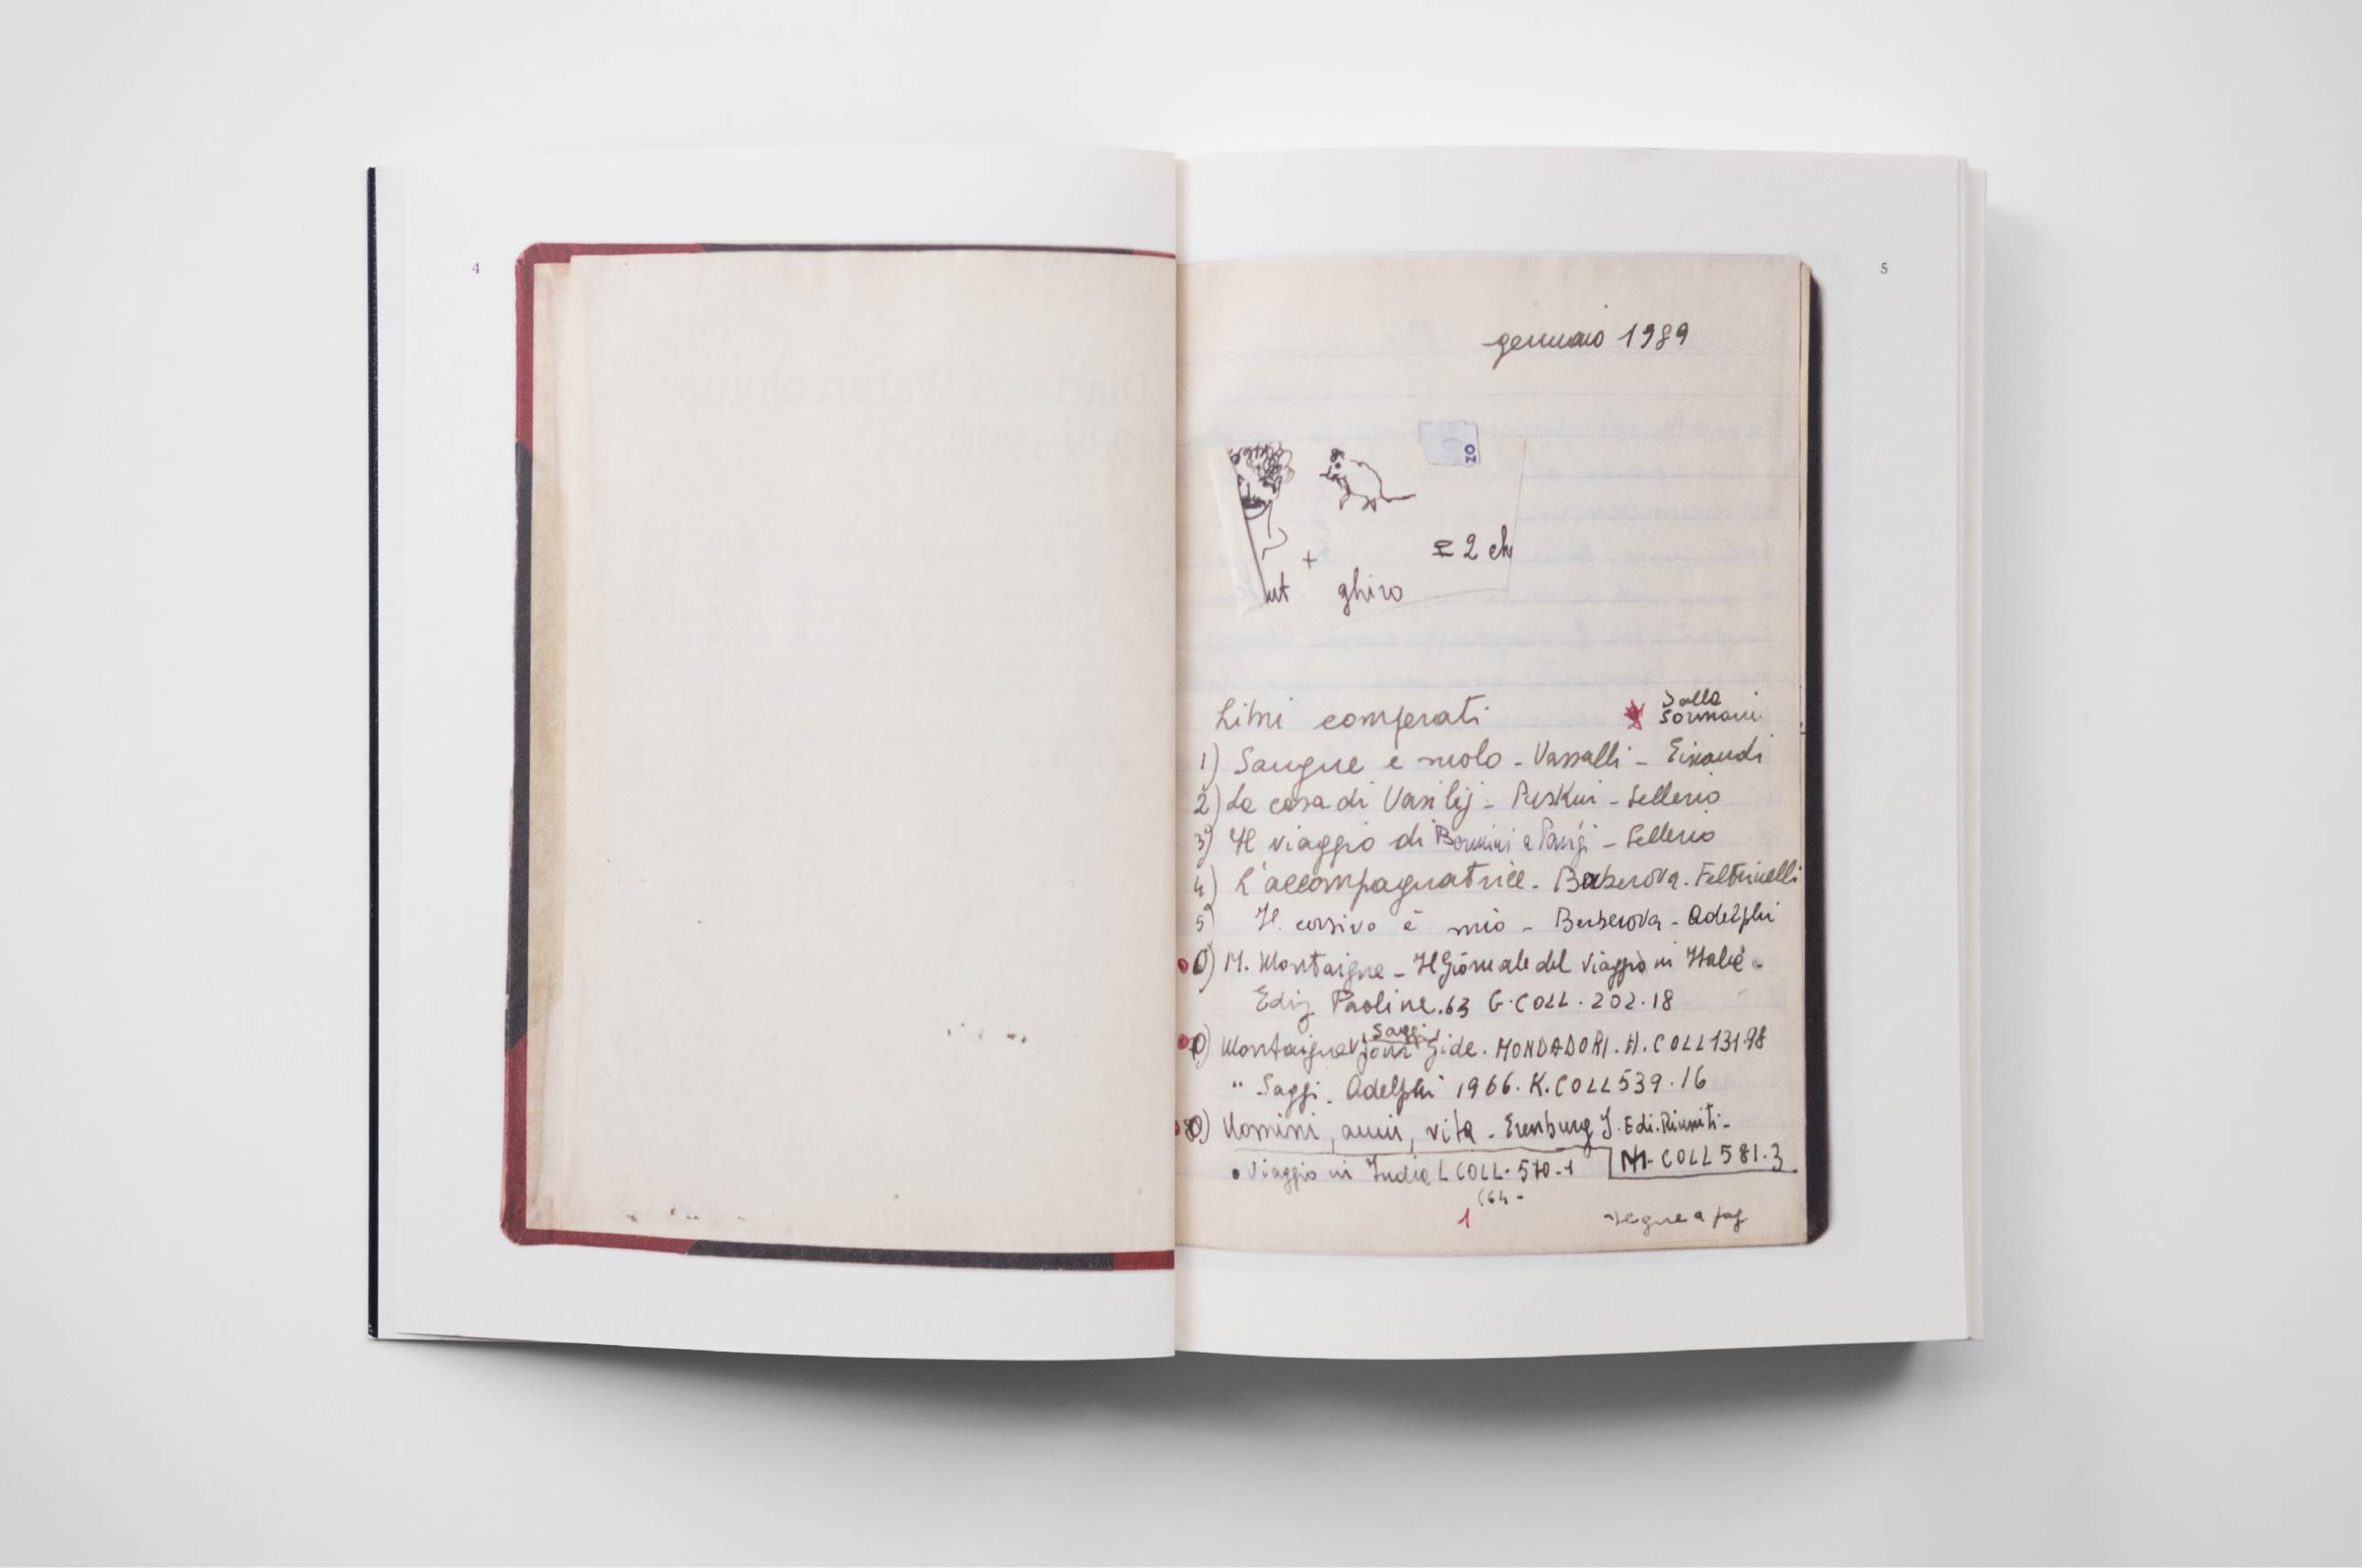 4
5
gennaio 1989
zo
+
= 2 ch
ut ghiro
Libri comperati
dalla
Sormani
1) Sangue e suolo - Vassalli - Einaudi
2) La casa di Vasilij - Puskin - Sellerio
3) Il viaggio di Bernini a Parigi - Sellerio
4) L'accompagnatrice - Berberova - Feltrinelli
5) Il corsivo è mio - Berberova - Adelphi
6) M. Montaigne - Il Giornale del Viaggio in Italia -
Ediz. Paoline. 63 G. COLL. 202.18
Saggi
7) Montaigne Gide. MONDADORI. H. COLL 131.98
" Saggi. Adelphi 1966. K. COLL 539.16
8) Uomini, anni, vita - Erenburg I. Edi. Riuniti -
M. COLL 581.3
• Viaggio in India L COLL. 570.1
(64 -
1
segue a pag